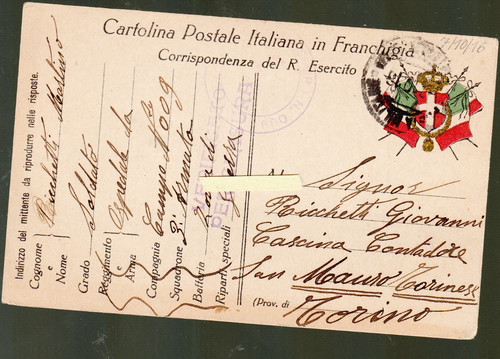 7/10/16
Cartolina Postale Italiana in Franchigia
Corrispondenza del R. Esercito
Indirizzo del mittente da riprodurre nelle risposte.
Cognome e Nome Ricchetti Martino
Grado Soldato
Reggimento e Arma Ospedale da
Compagnia Campo N. 009
Squadrone 3a Armata
Batteria Zona di
Riparti speciali Guerra
VERIFICATO
PER CENSURA
Al Signor
Ricchetti Giovanni
Cascina Contadore
San Mauro Torinese
(Prov. di
Torino